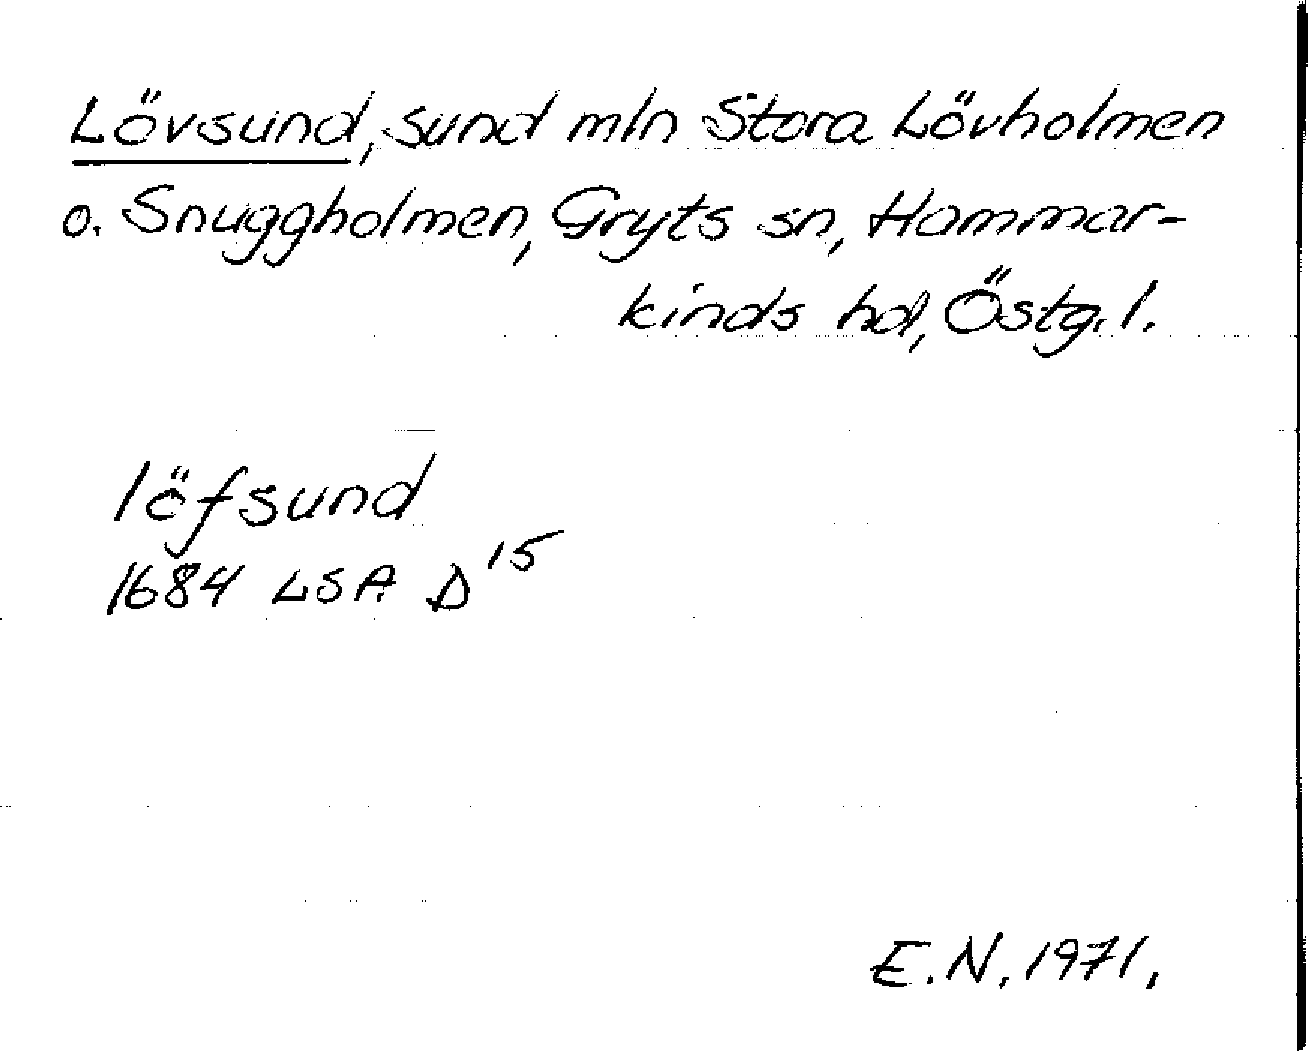 Lövsund, sund mln Stora Lövholmen
o. Snuggholmen, Gryts sn, Hammar-
kinds hd, Östg.l.
löfsund
1684 LSA D15
E.N. 1971.